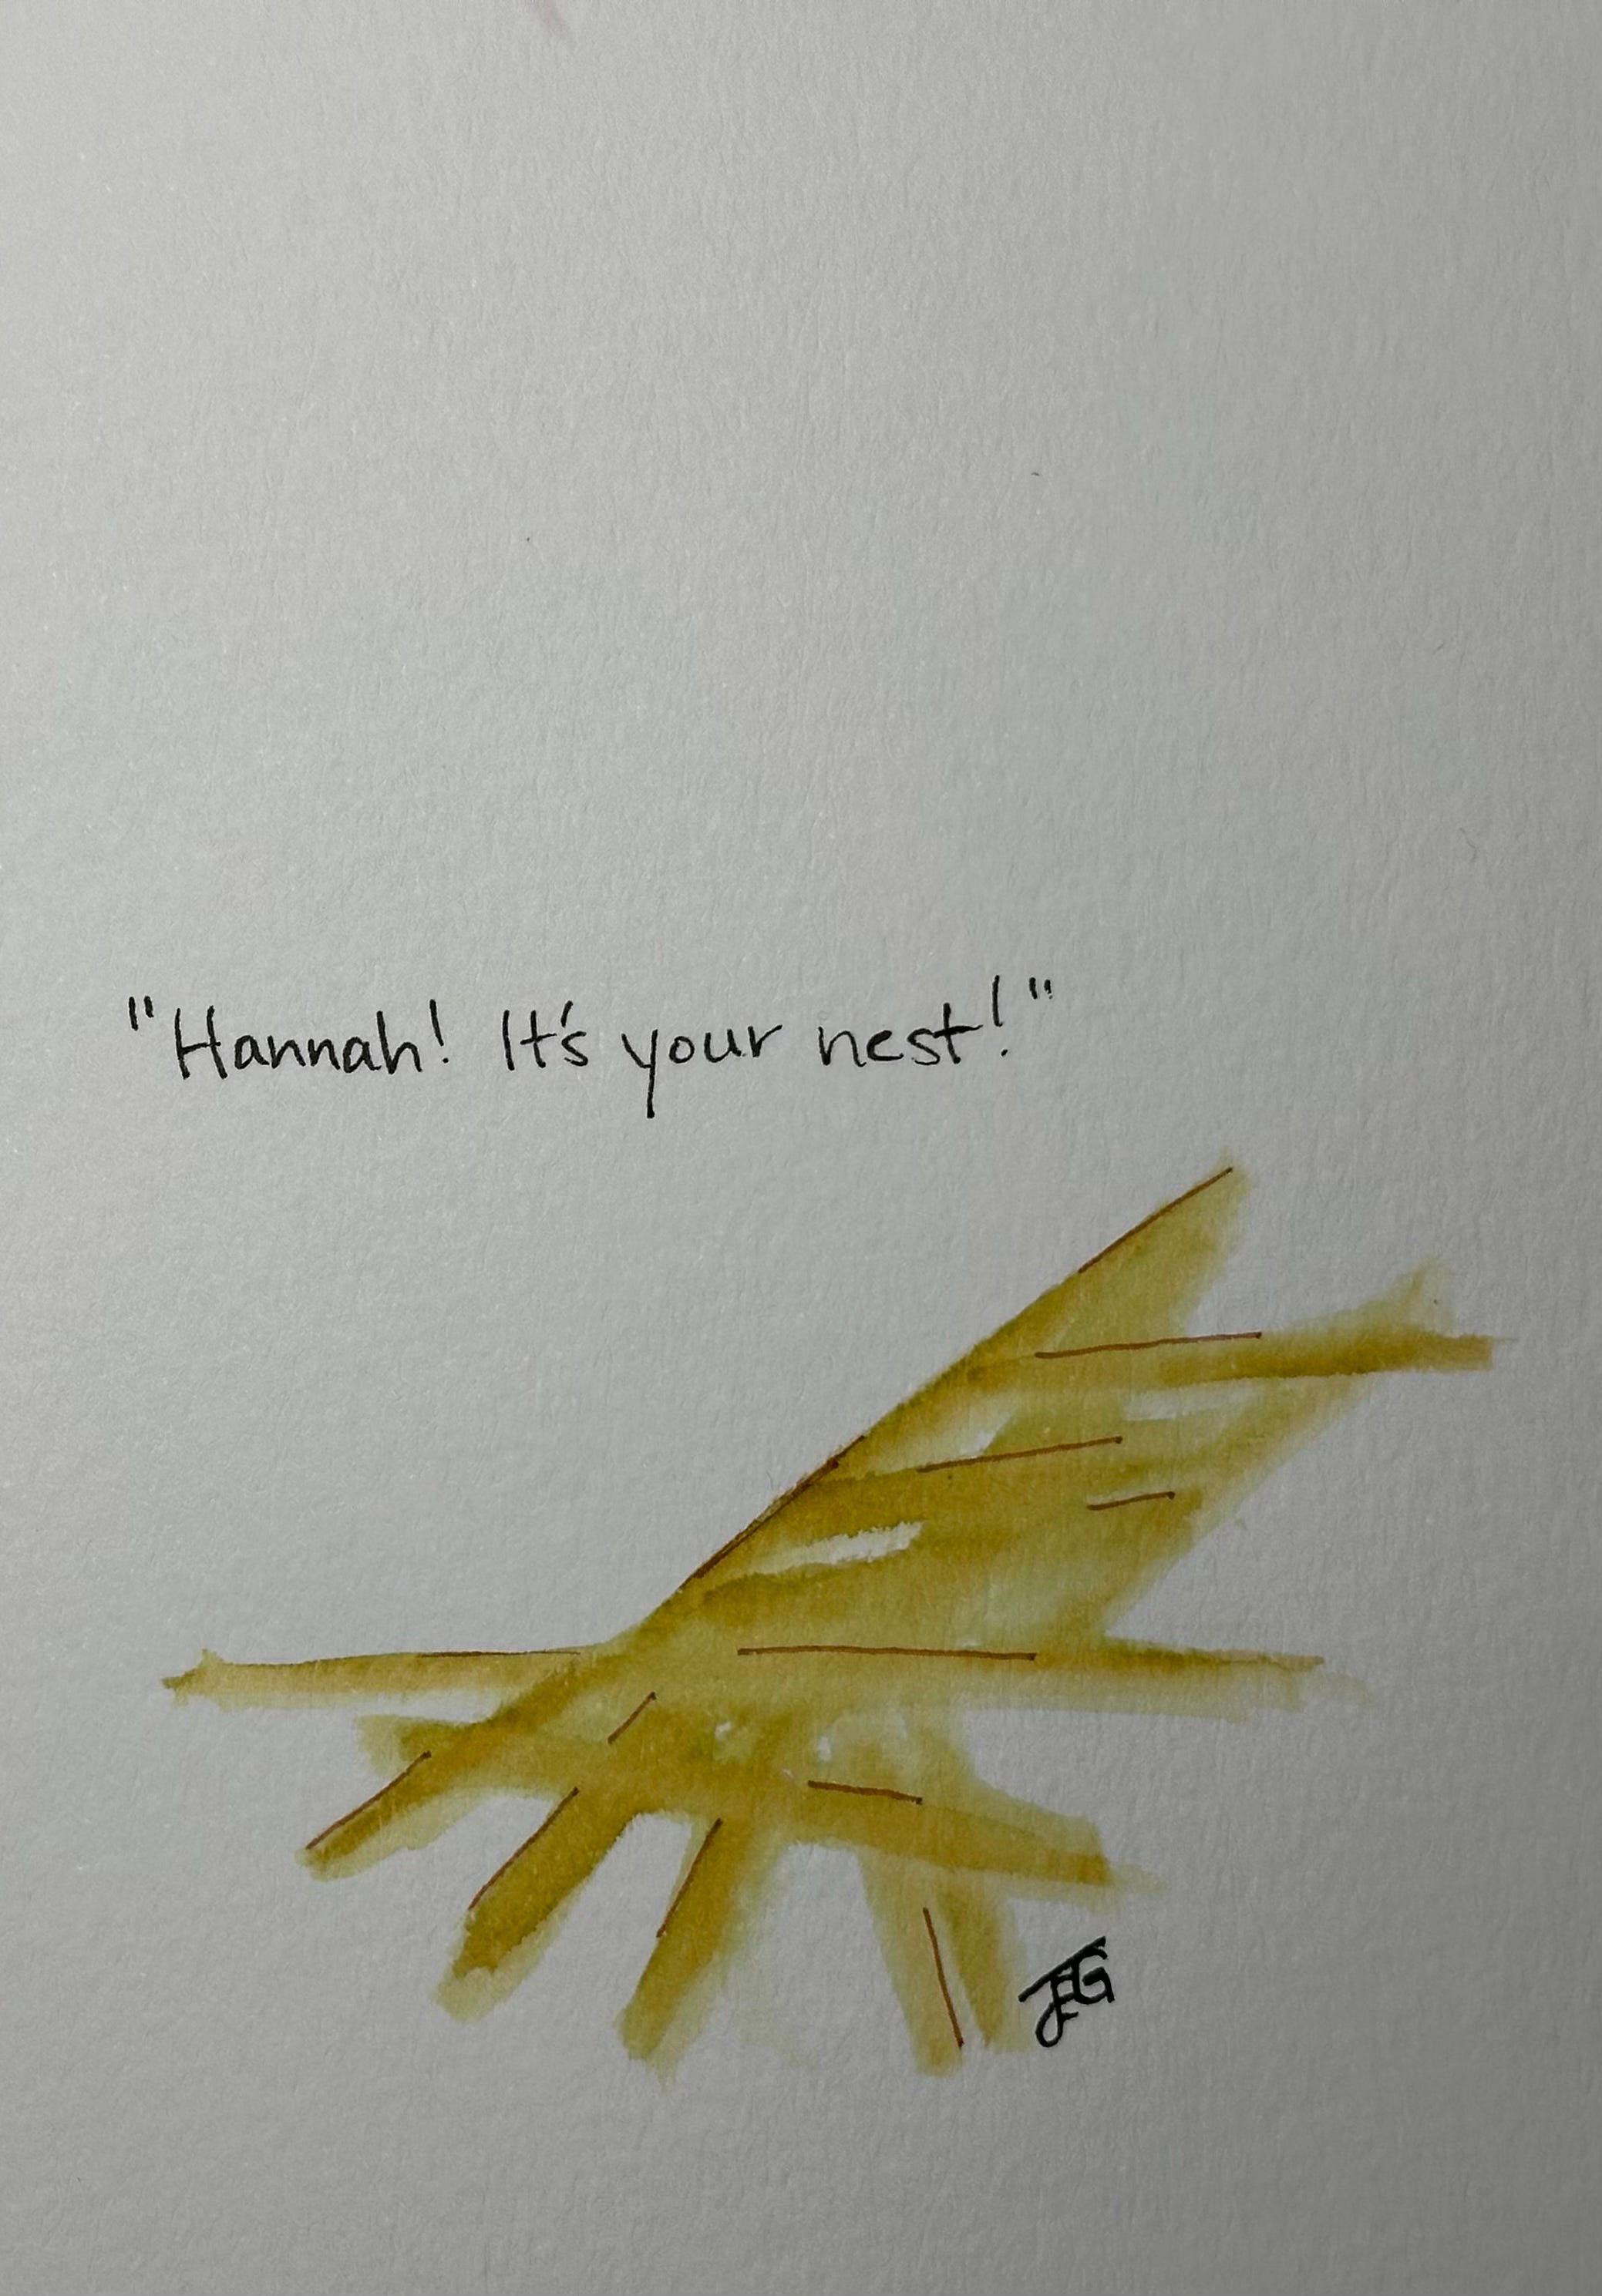 "Hannah! It's your nest!"
JEG